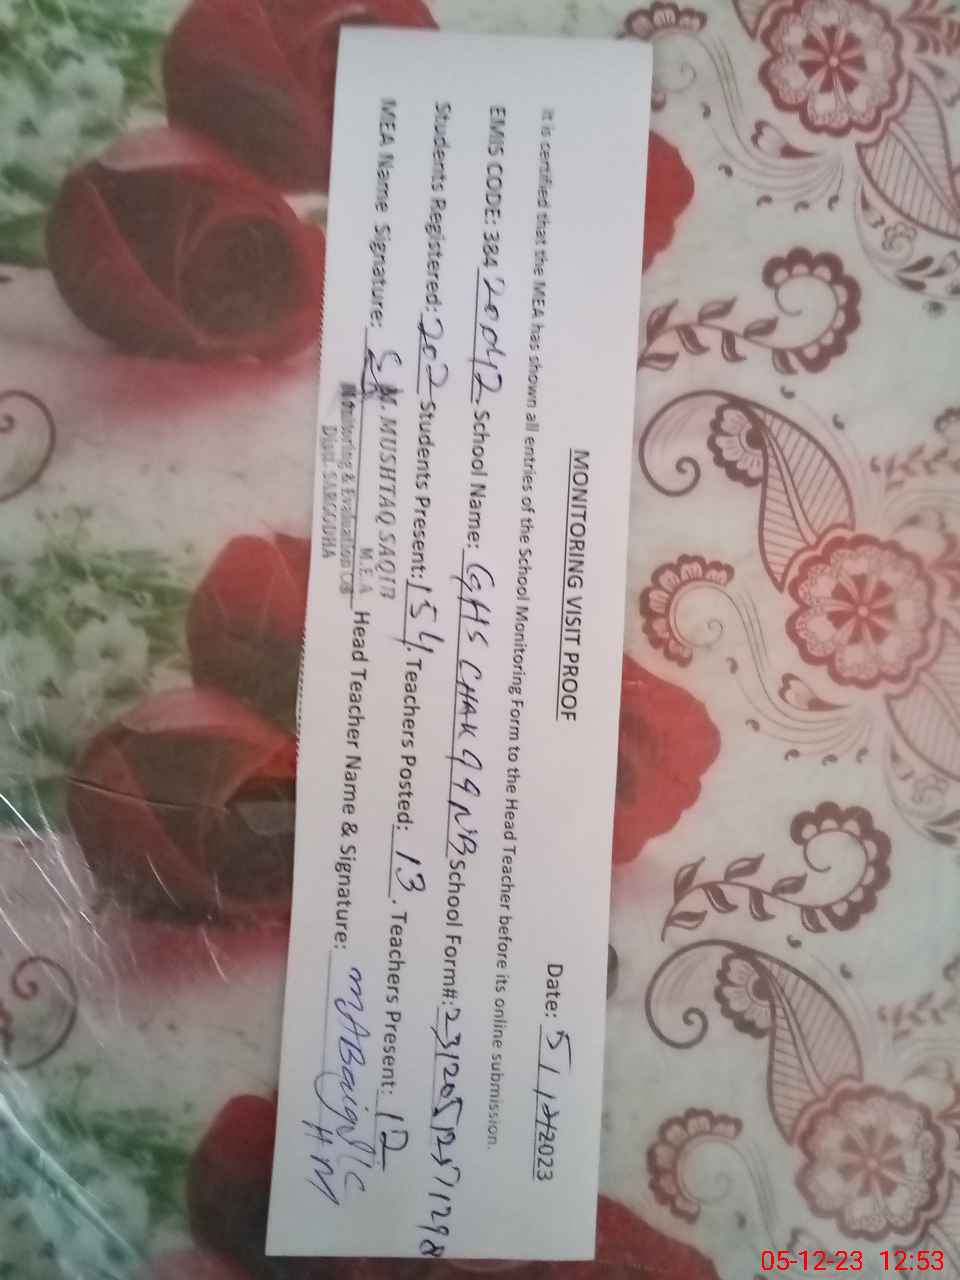 MONITORING VISIT PROOF
Date: 5/12/2023
It is certified that the MEA has shown all entries of the School Monitoring Form to the Head Teacher before its online submission.
EMIS CODE: 38420042 School Name: GHS CHAK 99 NB School Form#: 231205
Students Registered: 202 Students Present: 154. Teachers Posted: 13. Teachers Present: 12
MEA Name Signature: S.M. MUSHTAQ SAQIB Head Teacher Name & Signature: HM
M.E.A
Monitoring & Evaluation
Distt. SARGODHA
05-12-23 12:53